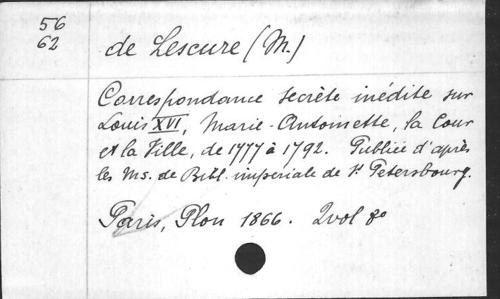 56
62
de Lescure (M.)
Correspondance secrète inédite sur
Louis XVI, Marie-Antoinette, la Cour
et la Ville, de 1777 à 1792. Publiée d'après
les Ms. de Bibl. impériale de St Petersbourg.
Paris, Plon 1866. 2 vol 8o